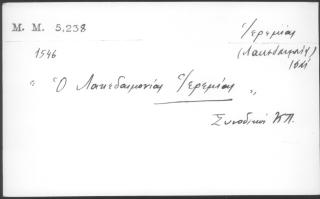 M. M. 5.238
Ἱερεμίας
(Λακεδαιμονίας)
1546
" Ὁ Λακεδαιμονίας Ἱερεμίας "
Συνοδικοί ΚΠ.